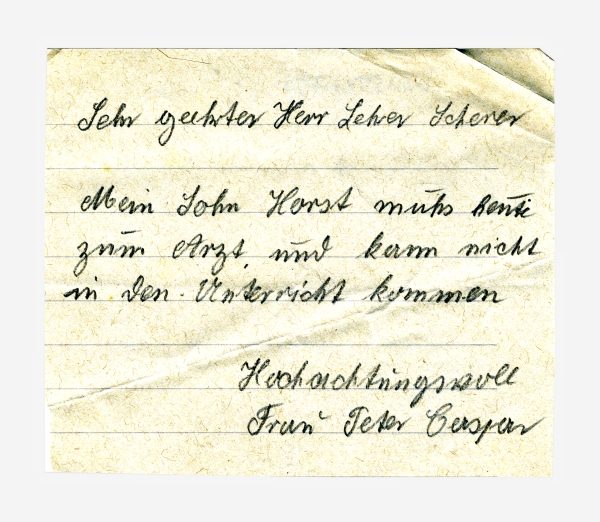 Sehr geehrter Herr Lehrer Scherer
Mein Sohn Horst muhs heute
zum Arzt, und kann nicht
in den Unterricht kommen
Hochachtungsvoll
Frau Peter Caspar